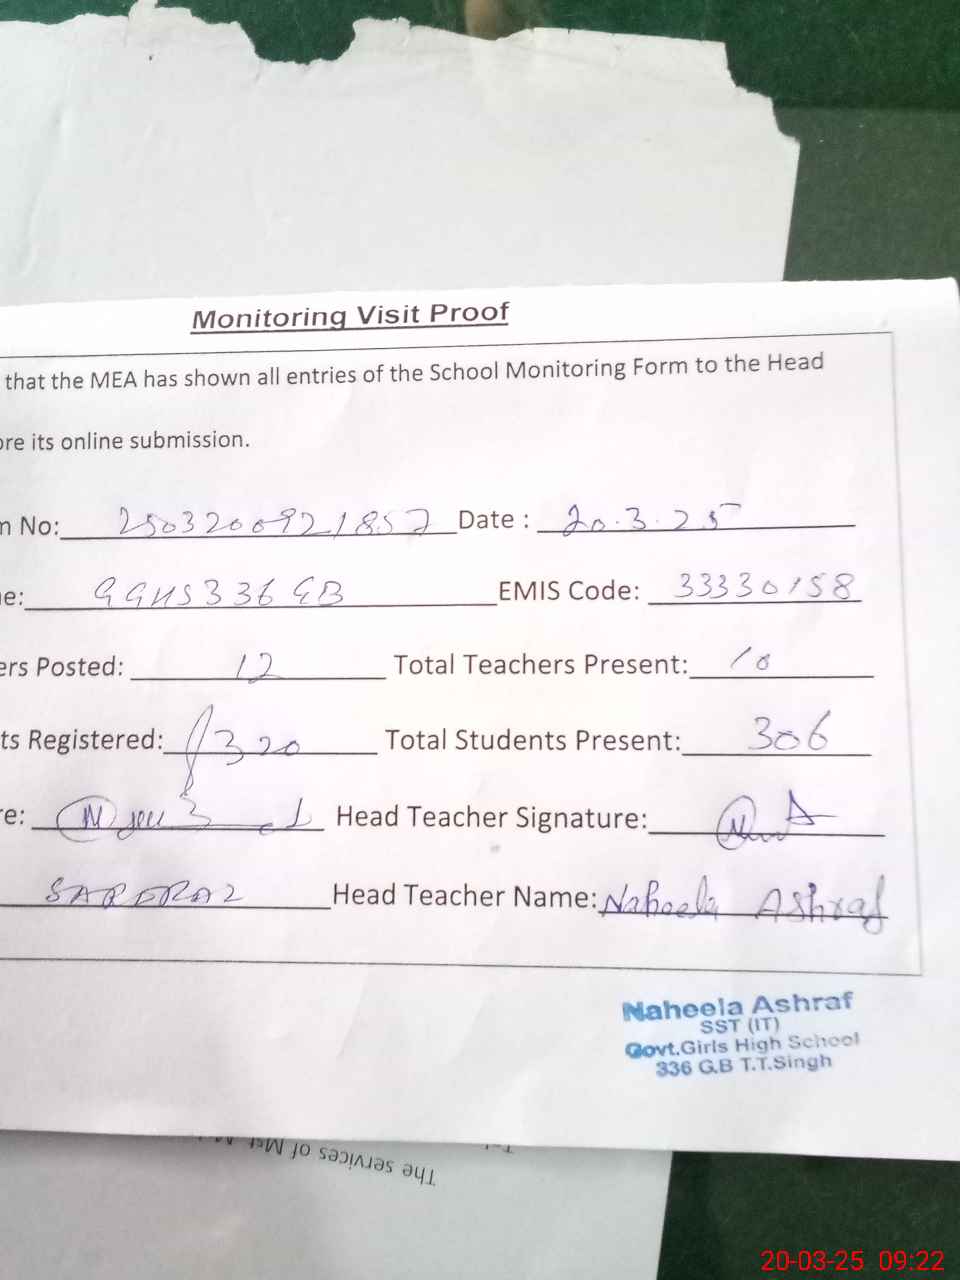 Monitoring Visit Proof
that the MEA has shown all entries of the School Monitoring Form to the Head
ore its online submission.
No: 2503200921857 Date : 20.3.25
e: GGHS 336 GB EMIS Code: 33330158
ers Posted: 12 Total Teachers Present: 10
ts Registered: 320 Total Students Present: 306
e: Head Teacher Signature:
SARFRAZ Head Teacher Name: Naheela Ashraf
Naheela Ashraf
SST (IT)
Govt.Girls High School
336 G.B T.T.Singh
The services of Mst.
20-03-25 09:22